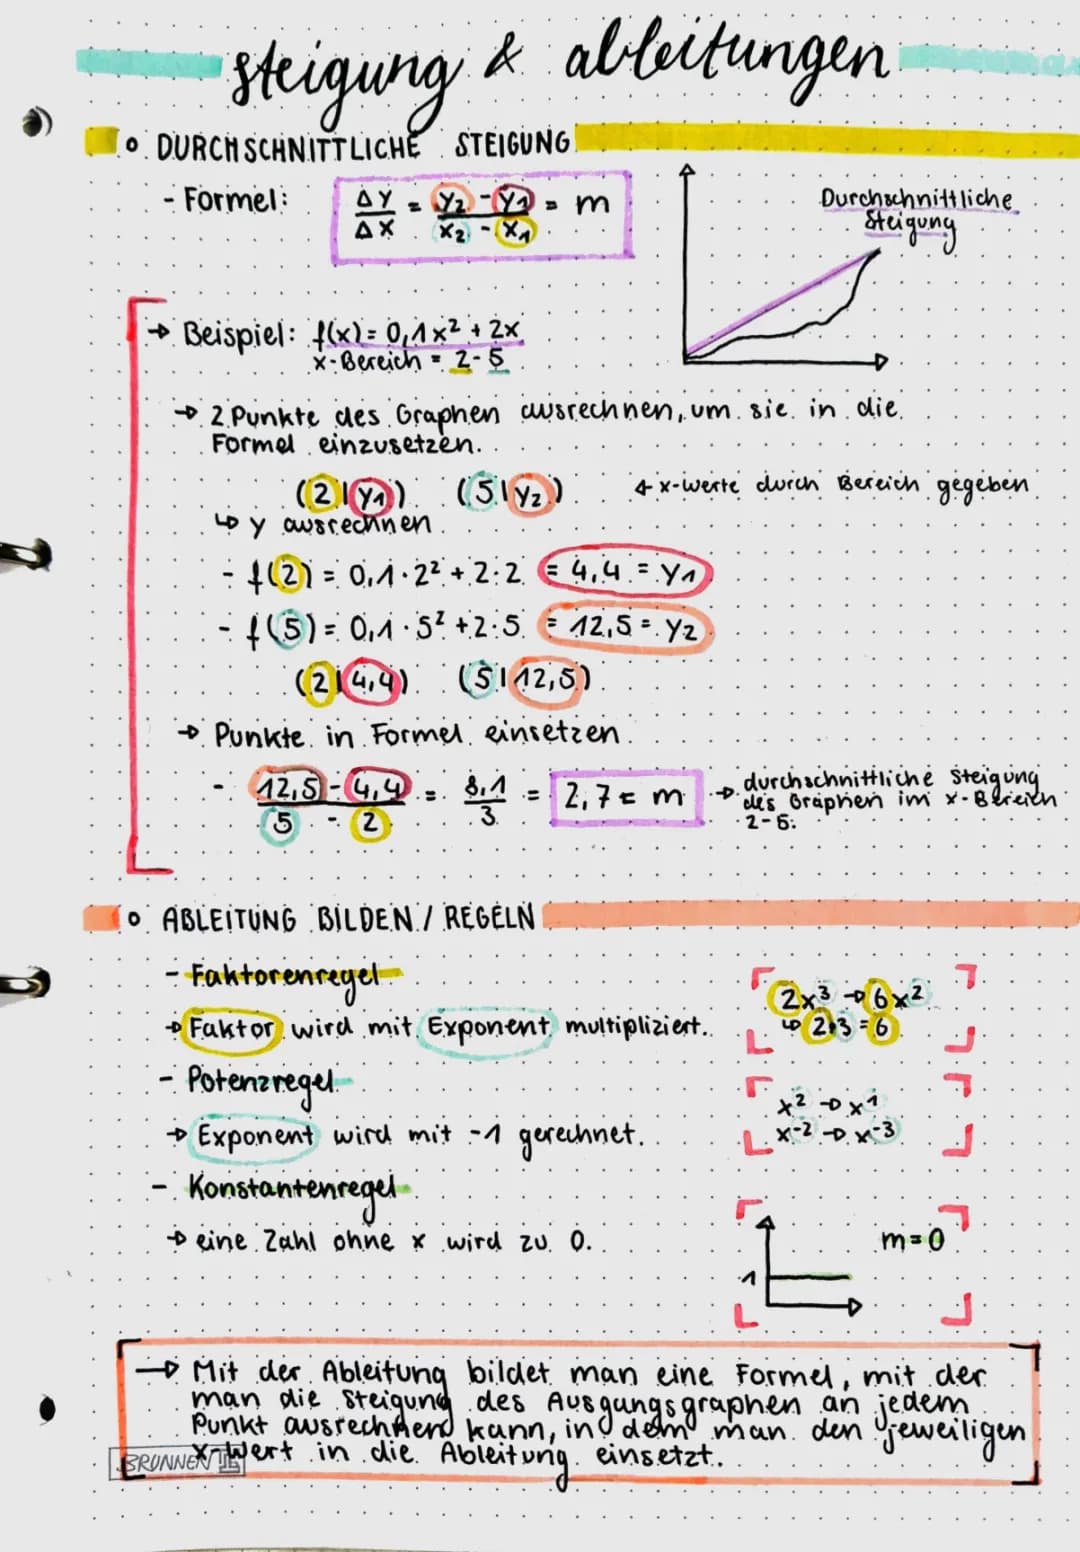 steigung & ableitungen
DURCHSCHNITTLICHE STEIGUNG
- Formel: ΔY/ΔX = Y₂ - Y₁/X₂ - X₁ = m
Durchschnittliche
Steigung
→ Beispiel: f(x) = 0,1x² + 2x
x-Bereich = 2-5
→ 2 Punkte des Graphen ausrechnen, um sie in die
Formel einzusetzen.
(2|Y₁) (5|Y₂) ← x-werte durch Bereich gegeben
↳ y ausrechnen
- f(2) = 0,1·2² + 2·2 = 4,4 = Y₁
- f(5) = 0,1·5² + 2·5 = 12,5 = Y₂
(2|4,4) (5|12,5)
→ Punkte in Formel einsetzen
- 12,5 - 4,4/5 - 2 = 8,1/3 = 2,7 = m
→ durchschnittliche Steigung
des Graphen im x-Bereich
2-5.
ABLEITUNG BILDEN / REGELN
- Faktorenregel
→ Faktor wird mit Exponent multipliziert.
2x³ → 6x²
↳ 2·3 = 6
- Potenzregel
→ Exponent wird mit -1 gerechnet.
x² → x¹
x⁻² → x⁻³
- Konstantenregel
→ eine Zahl ohne x wird zu 0.
m = 0
1
→ Mit der Ableitung bildet man eine Formel, mit der
man die Steigung des Ausgangsgraphen an jedem
Punkt ausrechnend kann, in dem man den jeweiligen
x-Wert in die Ableitung einsetzt.
BRUNNEN